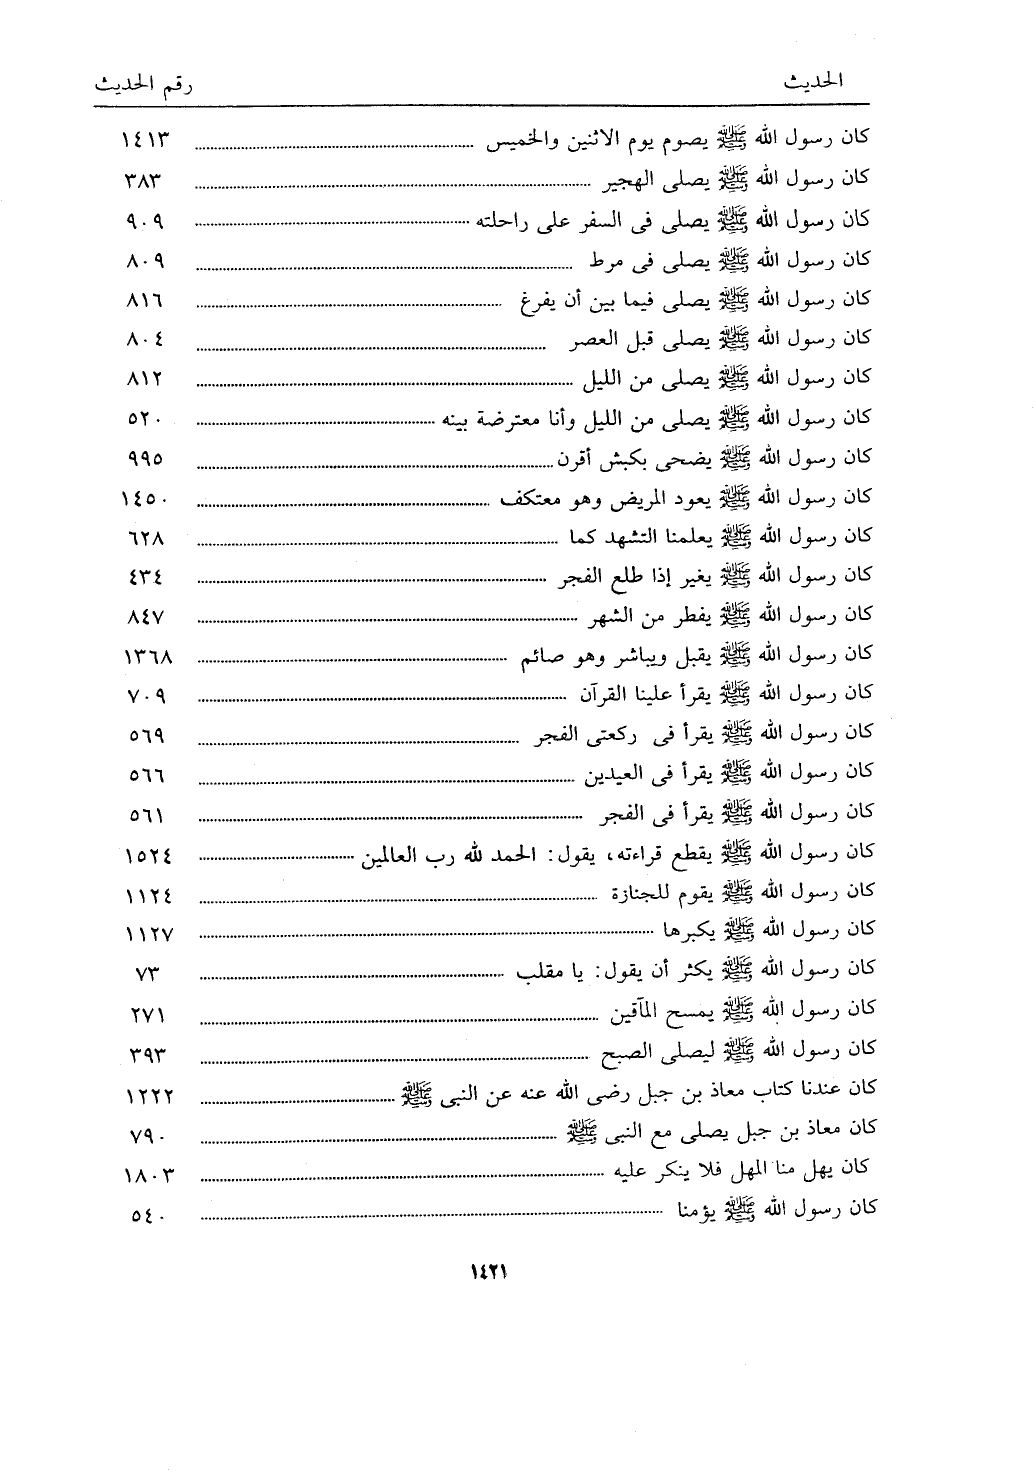 الحديث رقم الحديث
كان رسول الله ﷺ يصوم يوم الاثنين والخميس ١٤١٣
كان رسول الله ﷺ يصلى الهجير ٣٨٣
كان رسول الله ﷺ يصلى فى السفر على راحلته ٩٠٩
كان رسول الله ﷺ يصلى فى مرط ٨٠٩
كان رسول الله ﷺ يصلى فيما بين أن يفرغ ٨١٦
كان رسول الله ﷺ يصلى قبل العصر ٨٠٤
كان رسول الله ﷺ يصلى من الليل ٨١٢
كان رسول الله ﷺ يصلى من الليل وأنا معترضة بينه ٥٢٠
كان رسول الله ﷺ يضحى بكبش أقرن ٩٩٥
كان رسول الله ﷺ يعود المريض وهو معتكف ١٤٥٠
كان رسول الله ﷺ يعلمنا التشهد كما ٦٢٨
كان رسول الله ﷺ يغير إذا طلع الفجر ٤٣٤
كان رسول الله ﷺ يفطر من الشهر ٨٤٧
كان رسول الله ﷺ يقبل ويباشر وهو صائم ١٣٦٨
كان رسول الله ﷺ يقرأ علينا القرآن ٧٠٩
كان رسول الله ﷺ يقرأ فى ركعتى الفجر ٥٦٩
كان رسول الله ﷺ يقرأ فى العيدين ٥٦٦
كان رسول الله ﷺ يقرأ فى الفجر ٥٦١
كان رسول الله ﷺ يقطع قراءته، يقول: الحمد لله رب العالمين ١٥٢٤
كان رسول الله ﷺ يقوم للجنازة ١١٢٤
كان رسول الله ﷺ يكبرها ١١٢٧
كان رسول الله ﷺ يكثر أن يقول: يا مقلب ٧٣
كان رسول الله ﷺ يمسح المآقين ٢٧١
كان رسول الله ﷺ ليصلى الصبح ٣٩٣
كان عندنا كتاب معاذ بن جبل رضى الله عنه عن النبى ﷺ ١٢٢٢
كان معاذ بن جبل يصلى مع النبى ﷺ ٧٩٠
كان يهل منا المهل فلا ينكر عليه ١٨٠٣
كان رسول الله ﷺ يؤمنا ٥٤٠
١٤٢١